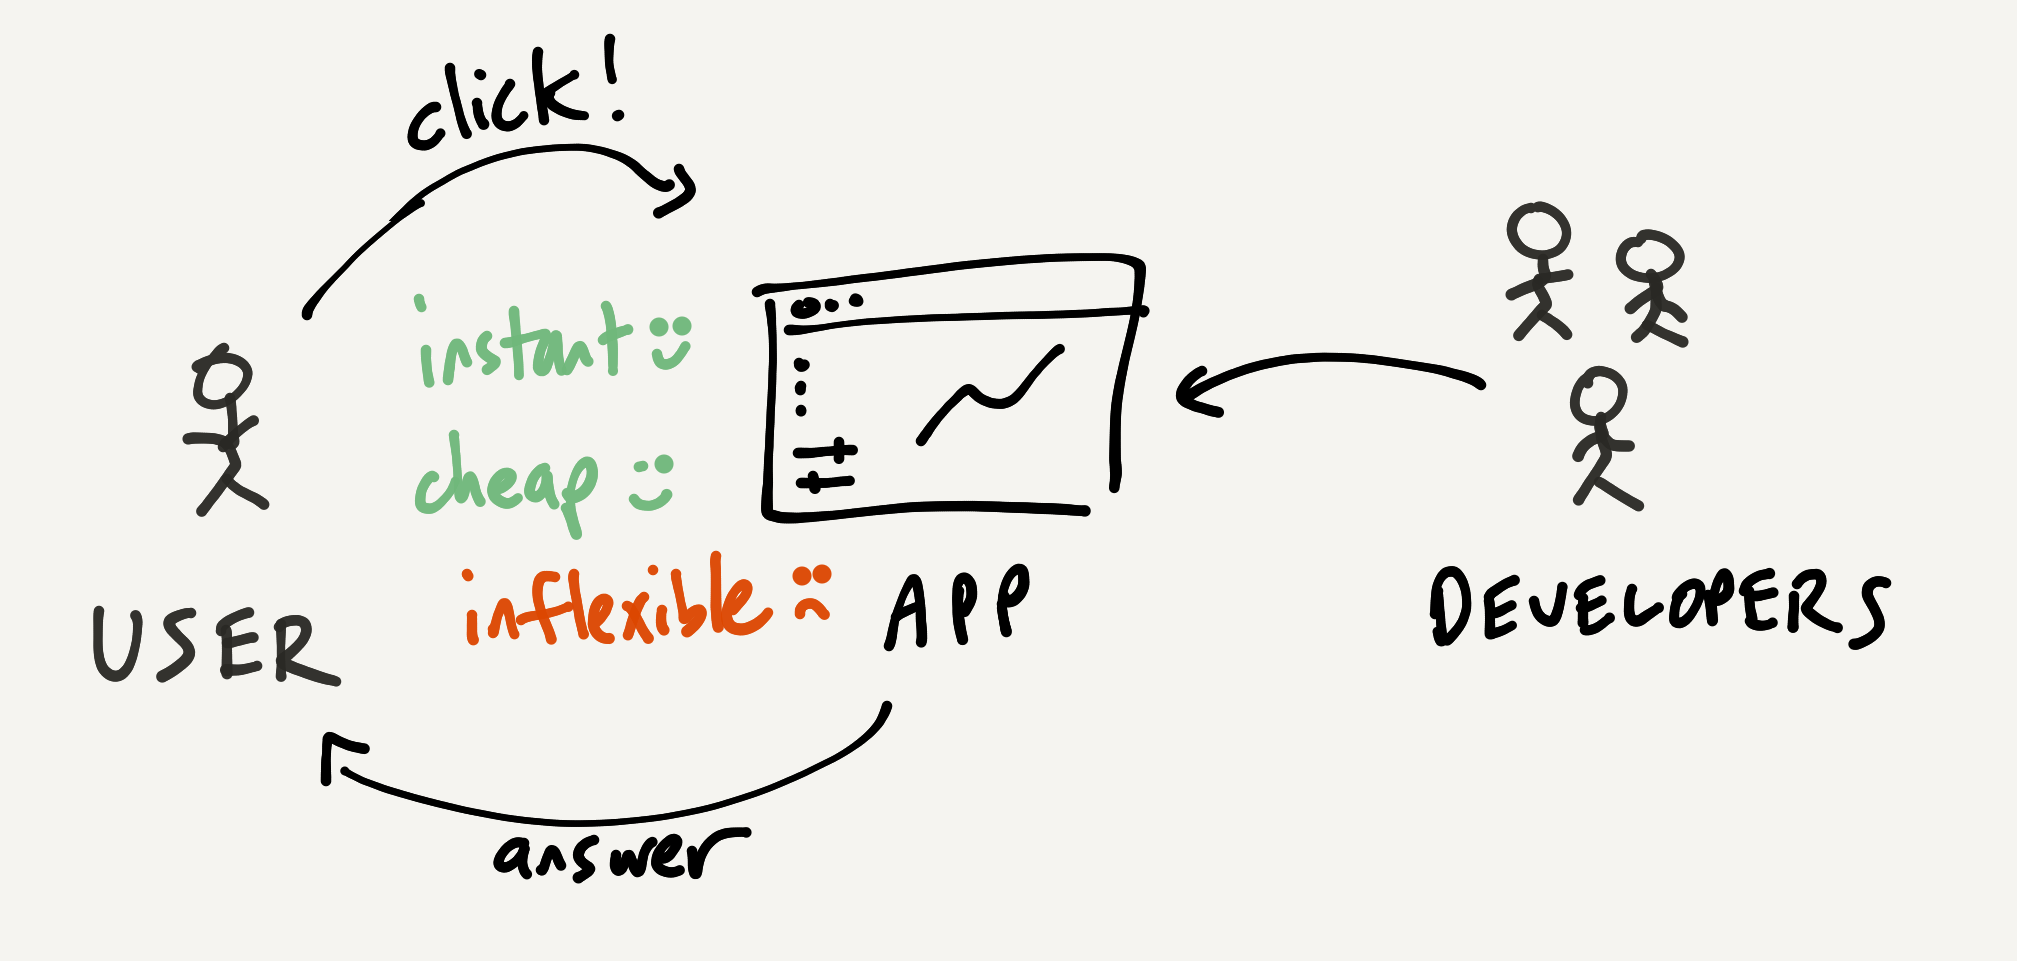 click!
instant
cheap
inflexible
USER
APP
DEVELOPERS
answer